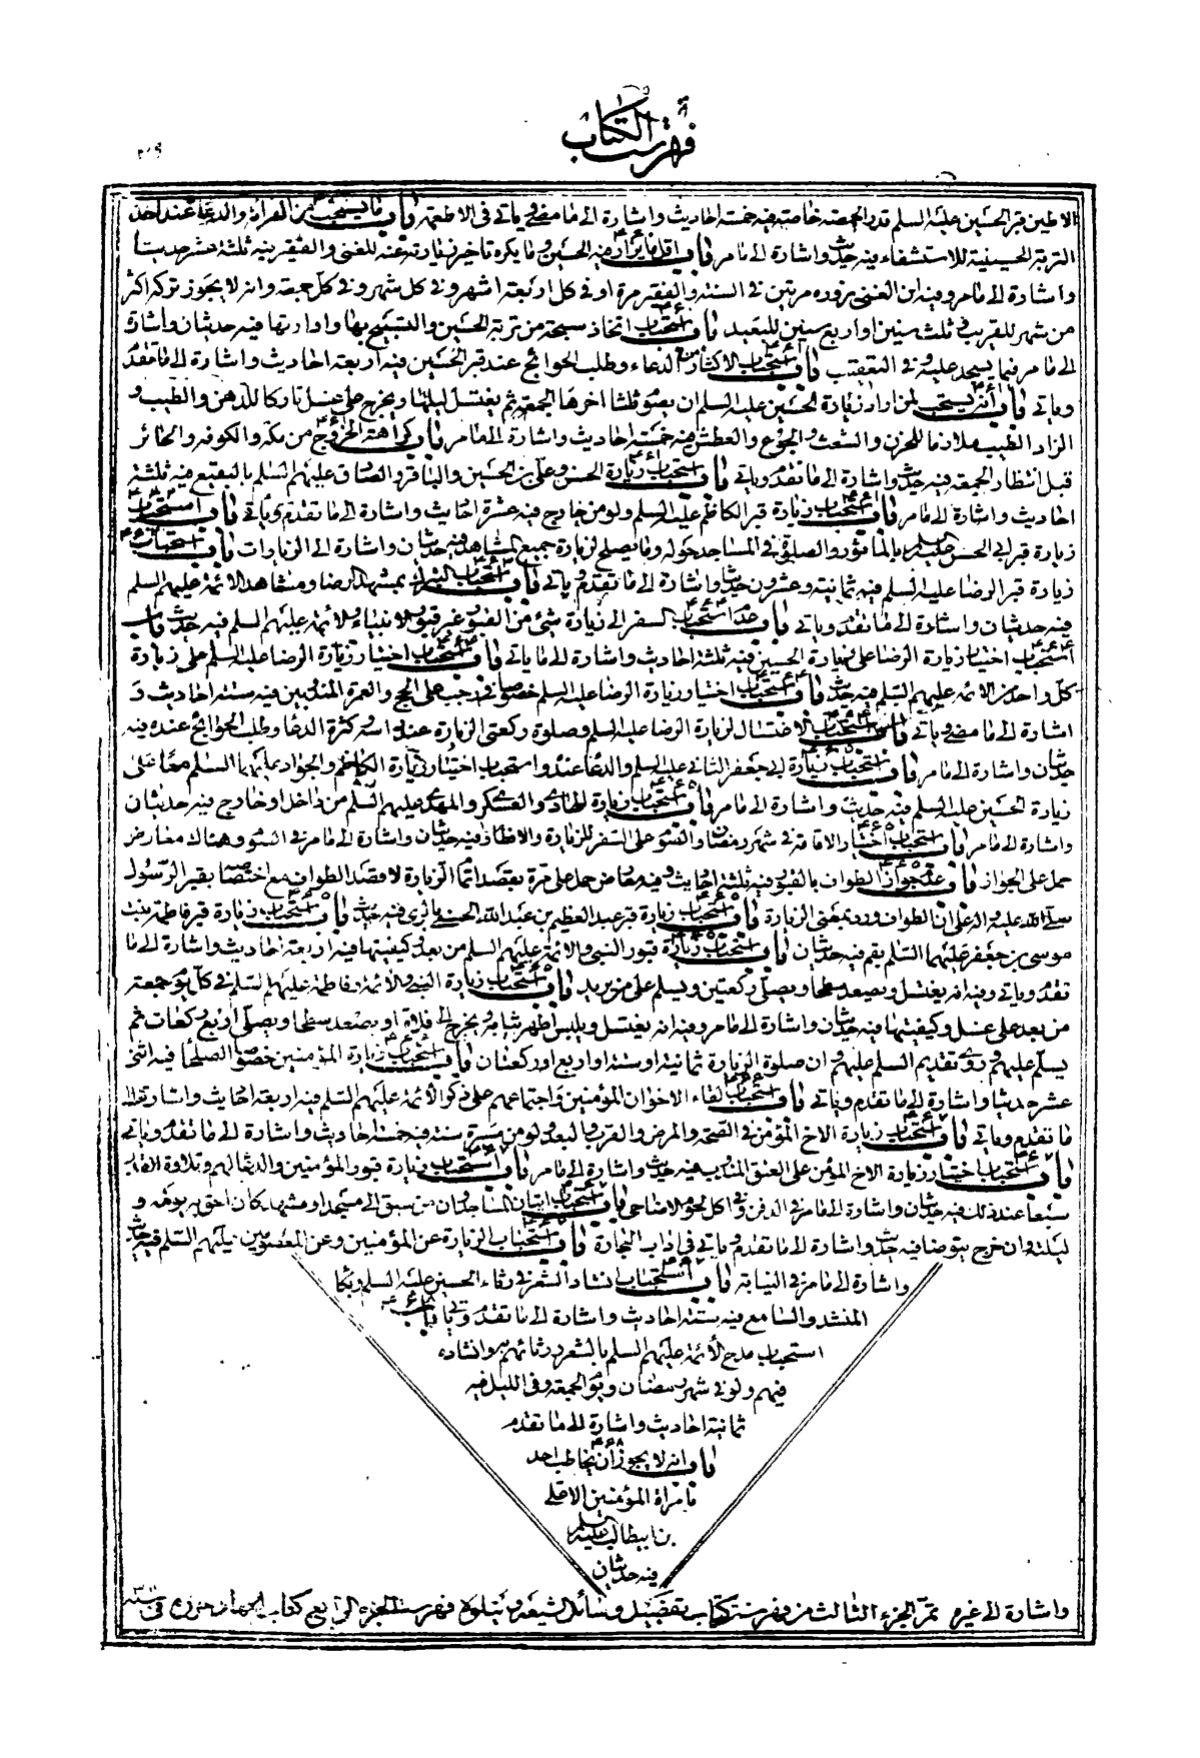 فهرست الكتاب
الا طين قبر الحسين عليه السلم قدر الحمصة خاصة فيه خمسة احاديث واشارة الى ما مضى وياتى فى الاطعمة باب ما يستحب من القراءة والدعاء عند اخذ
التربة الحسينية للاستشفاء فيه حديث واشارة الى ما مر باب اقل ما يزار فيه الحسين وما يكره تاخير زيارته عنه للغنى والفقير فيه ثلثة عشر حديثا
واشارة الى ما مر وفيه ان الغنى يزوره مرتين فى السنة والفقير مرة او فى كل اربعة اشهر وفى كل شهر وفى كل جمعة وانه لا يجوز تركه اكثر
من شهر للقريب فى ثلث سنين او اربع سنين للبعيد باب استحباب اتخاذ سبحة من تربة الحسين والتسبيح بها وادارتها فيه حديثان واشارة
الى ما مر فيما يسجد عليه وفى التعقيب باب استحباب الاكثار من الدعاء وطلب الحوائج عند قبر الحسين فيه اربعة احاديث واشارة الى ما تقدم
وياتى باب انه يستحب لمن اراد زيارة الحسين عليه السلم ان يصوم ثلثا اخرها الجمعة ثم يغتسل ليلتها ويخرج على غسل تاركا للدهن والطيب و
الزاد الطيب ملازما للحزن والشعث والجوع والعطش فيه خمسة احاديث واشارة الى ما مر باب كراهة الخروج من مكة والكوفة والحائر
قبل انتظار الجمعة فيه حديث واشارة الى ما تقدم وياتى باب استحباب زيارة الحسن وعلى بن الحسين والباقر والصادق عليهم السلم بالبقيع فيه ثلثة
احاديث واشارة الى ما مر باب استحباب زيارة قبر الكاظم عليه السلم ولو من خارج فيه عشرة احاديث واشارة الى ما تقدم وياتى باب استحباب
زيارة قبر ابى الحسن عليه السلم بالماثور والصلوة فى المساجد حوله وما يصلح لزيارة جميع المشاهد فيه حديثان واشارة الى الزيارات باب استحباب
زيارة قبر الرضا عليه السلم فيه ثمانية وعشرون حديثا واشارة الى ما تقدم وياتى باب استحباب التبرك بمشهد الرضا ومشاهد الائمة عليهم السلم
فيه حديثان واشارة الى ما تقدم وياتى باب عدم استحباب السفر الى زيارة شئ من القبور غير قبور الانبياء والائمة عليهم السلم فيه حديث باب
استحباب اختيار زيارة الرضا على زيارة الحسين فيه ثلثة احاديث واشارة الى ما ياتى باب استحباب اختيار زيارة الرضا عليه السلم على زيارة
كل واحد من الائمة عليهم السلم فيه حديث باب استحباب اختيار زيارة الرضا عليه السلم خصوصا فى رجب على الحج والعمرة المندوبين فيه ستة احاديث و
اشارة الى ما مضى وياتى باب استحباب الاغتسال لزيارة الرضا عليه السلم وصلوة ركعتى الزيارة عند راسه وكثرة الدعاء وطلب الحوائج عنده فيه
حديثان واشارة الى ما مر باب استحباب زيارة ابى جعفر الثانى عليه السلم والدعاء عنده واستحباب اختيار زيارة الكاظم والجواد عليهما السلم معا على
زيارة الحسين عليه السلم فيه حديث واشارة الى ما مر باب استحباب زيارة الهادى والعسكرى والمهدى عليهم السلم من داخل او خارج فيه حديثان
واشارة الى ما مر باب استحباب اختيار الاقامة فى شهر رمضان والصوم على السفر للزيارة والافطار فيه حديثان واشارة الى ما مر فى الصوم وهناك معارض
حمل على الجواز باب عدم جواز الطواف بالقبور فيه ثلثة احاديث وفيه معارض حمل على مرة بقصد اتمام الزيارة لا قصد الطواف مع اختصاصه بقبر الرسول
صلى الله عليه واله على ان الطواف ورد بمعنى الزيارة باب استحباب زيارة قبر عبد العظيم بن عبد الله الحسنى بالرى فيه حديث باب استحباب زيارة قبر فاطمة بنت
موسى بن جعفر عليهما السلم بقم فيه حديثان باب استحباب زيارة قبور النبى والائمة عليهم السلم من بعد وكيفيتها فيه اربعة احاديث واشارة الى ما
تقدم وياتى وفيه انه يغتسل ويصعد سطحا ويصلى ركعتين ويسلم على من يريد باب استحباب زيارة النبى والائمة وفاطمة عليهم السلم فى كل يوم جمعة
من بعد على غسل وكيفيتها فيه حديثان واشارة الى ما مر وفيه انه يغتسل ويلبس اطهر ثيابه ويخرج الى فلاة او يصعد سطحا ويصلى اربع ركعات ثم
يسلم عليهم وروى تقديم السلم عليهم وان صلوة الزيارة ثمانية او ستة او اربع او ركعتان باب استحباب زيارة المؤمنين خصوصا الصلحاء فيه اثنى
عشر حديثا واشارة الى ما تقدم وياتى باب استحباب لقاء الاخوان المؤمنين واجتماعهم على ذكر الائمة عليهم السلم فيه اربعة احاديث واشارة الى
ما تقدم وياتى باب استحباب زيارة الاخ المؤمن فى الصحة والمرض والقرب والبعد ولو من مسيرة سنة فيه خمسة احاديث واشارة الى ما تقدم وياتى
باب استحباب اختيار زيارة الاخ المؤمن على العتق المندوب فيه حديث واشارة الى ما مر باب استحباب زيارة قبور المؤمنين والدعاء لهم وتلاوة القدر
سبعا عند ذلك فيه حديثان واشارة الى ما مر فى الدفن وفى اكل لحوم الاضاحى باب استحباب اتيان المساجد وان من سبق الى مسجد او مشهد كان احق به يومه و
ليلته وان خرج يتوضا فيه حديث واشارة الى ما تقدم وياتى فى اداب التجارة باب استحباب الزيارة عن المؤمنين وعن المعصومين عليهم السلم فيه حديث
واشارة الى ما مر فى النيابة باب استحباب انشاد الشعر فى رثاء الحسين عليه السلم وبكاء
المنشد والسامع فيه ستة احاديث واشارة الى ما تقدم وياتى باب
استحباب مدح الائمة عليهم السلم بالشعر ورثائهم به وانشاده
فيهم ولو فى شهر رمضان ويوم الجمعة وفى الليل فيه
ثمانية احاديث واشارة الى ما تقدم
باب انه لا يجوز ان يخاطب احد
بامراة المؤمنين الا على
بن ابيطالب عليه السلم
فيه حديثان
واشارة الى غيره تم الجزء الثالث من فهرست كتاب تفصيل وسائل الشيعة ويتلوه فهرست الجزء الرابع كتاب الجهاد